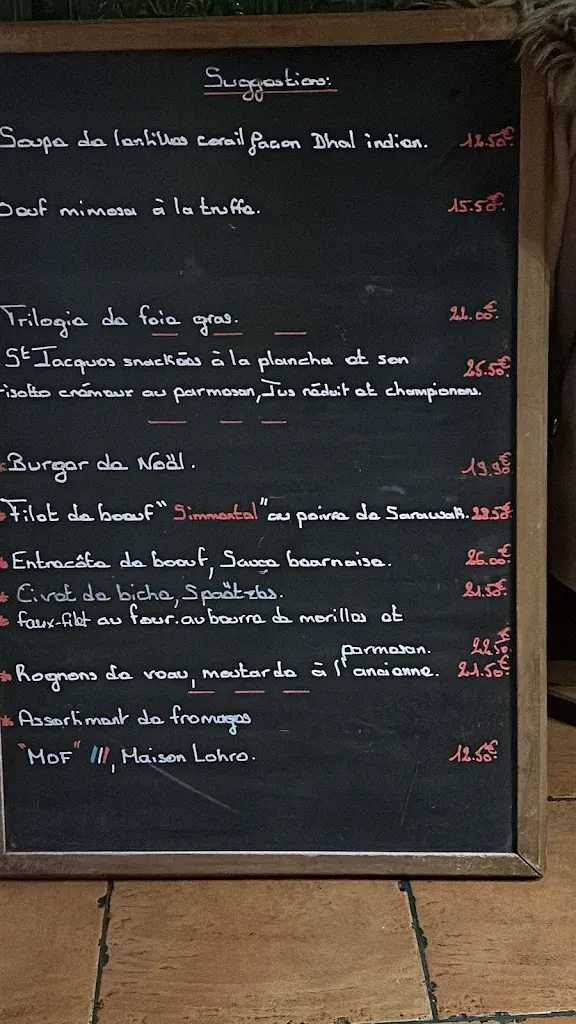 Suggestions:
Soupe de lentilles corail façon Dhal indien. 12.50€
Oeuf mimosa à la truffe. 15.50€
Trilogie de foie gras. 22.00€
St Jacques snackées à la plancha et son 25.50€
risotto crémeux au parmesan, Jus réduit et champignons.
Burger de Noël. 19.90€
* Filet de boeuf "Simmental" au poivre de Sarawak. 28.50€
* Entrecôte de boeuf, Sauce bearnaise. 26.00€
* Civet de biche, Spaëtzles. 21.50€
* faux-filet au four. au beurre de morilles et
parmesan. 22.50€
* Rognons de veau, moutarde à l'ancienne. 21.50€
* Assortiment de fromages
"MOF" ///, Maison Lohro. 12.50€